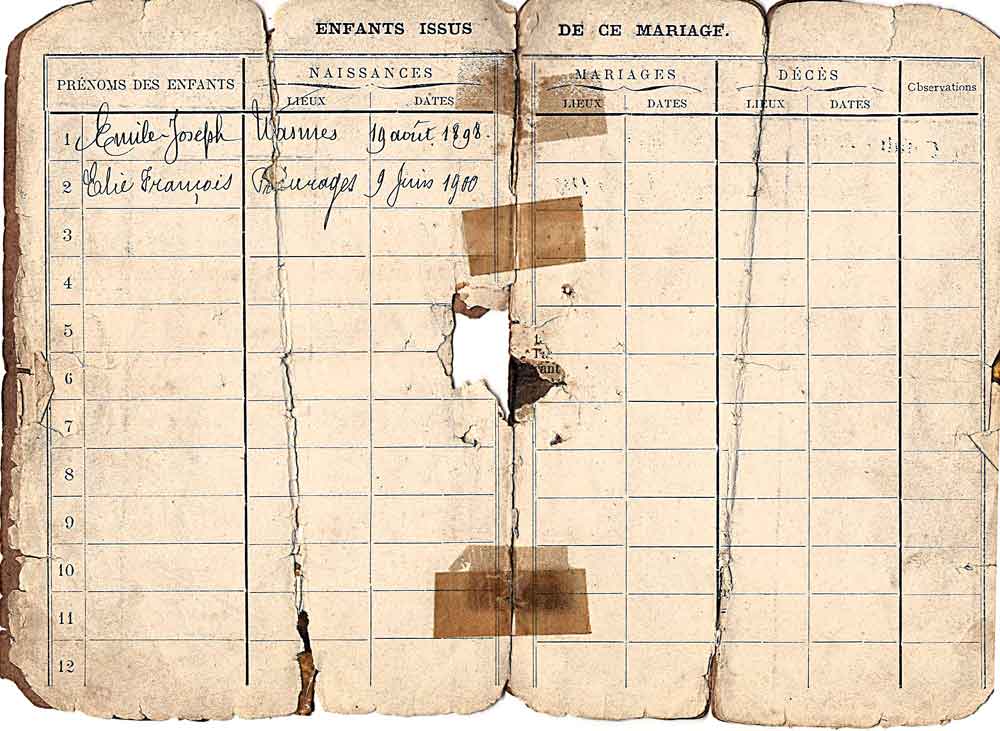 ENFANTS ISSUS DE CE MARIAGE.
PRÉNOMS DES ENFANTS NAISSANCES MARIAGES DÉCÈS Observations
LIEUX DATES LIEUX DATES LIEUX DATES
1 Emile-Joseph Wasmes 19 août 1898.
2 Elie François 9 Juin 1900
3
4
5
6 ant
7
8
9
10
11
12